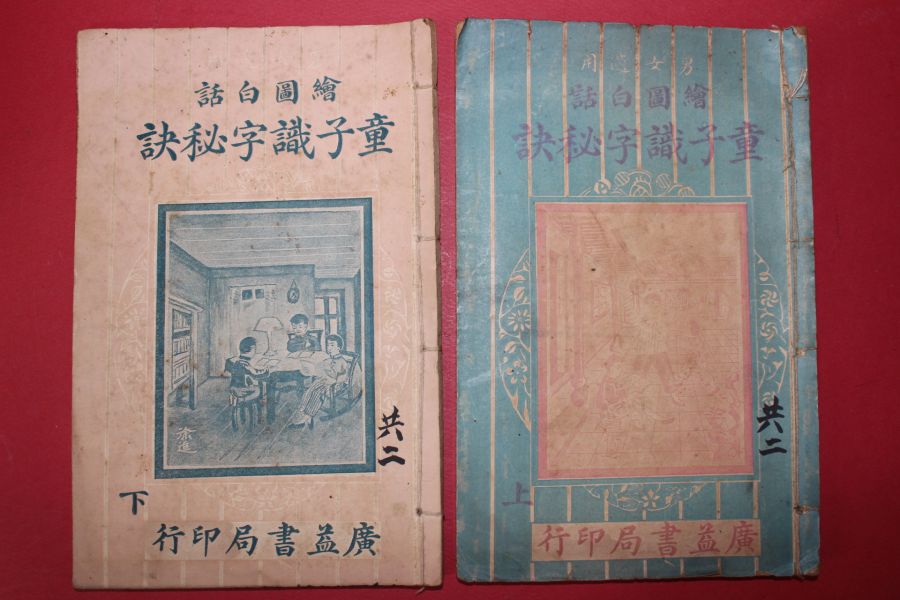 男女適用
繪圖白話
童子識字秘訣
共二
上
廣益書局印行
繪圖白話
童子識字秘訣
徐進
共二
下
廣益書局印行